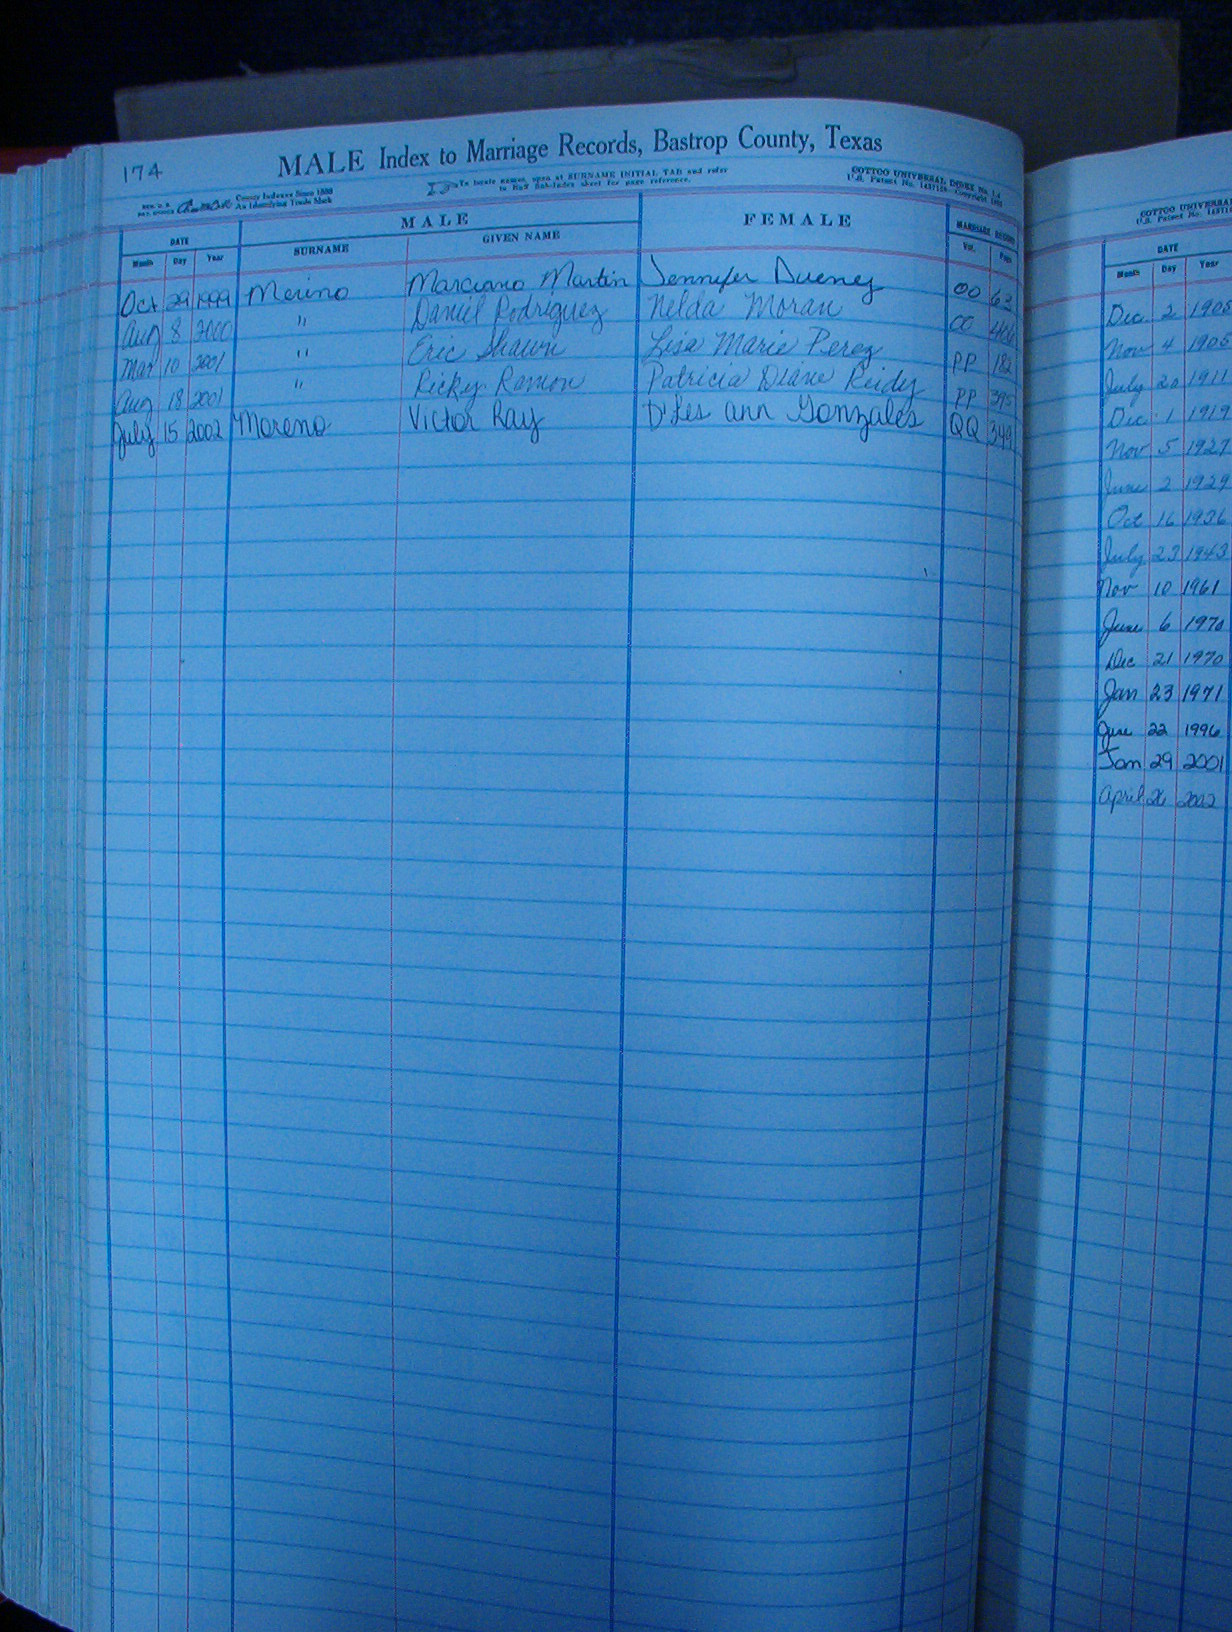 174
MALE Index to Marriage Records, Bastrop County, Texas
County Indexes Since 1888
An Identifying Trade Mark
To locate names, open at SURNAME INITIAL TAB and refer
to Sub-Index sheet for page reference.
COTTCO UNIVERSAL INDEX No.
U.S. Patent No. Copyright
DATE MALE FEMALE MARRIAGE RECORD
Month Day Year SURNAME GIVEN NAME Vol. Page
Oct 29 1999 Merino Marciano Martin Jennifer Dueney OO 63
Aug 8 2000 " Daniel Rodriguez Nelda Moran OO 466
Mar 10 2001 " Eric Shawn Lisa Marie Perez PP 182
Aug 18 2001 " Ricky Ramon Patricia Diane Reidy PP 395
July 15 2002 Moreno Victor Ray D'Les ann Gonzales QQ 349
COTTCO UNIVERSAL
U.S. Patent No.
DATE
Month Day Year
Dec 2
Nov 4
July 20 1911
Dec 1
Nov 5 1927
June 2 1929
Oct 16 1936
July 23 1943
Nov 10 1961
June 6 1970
Dec 21 1970
Jan 23 1971
June 22 1996
Jan 29 2001
April 26 2002